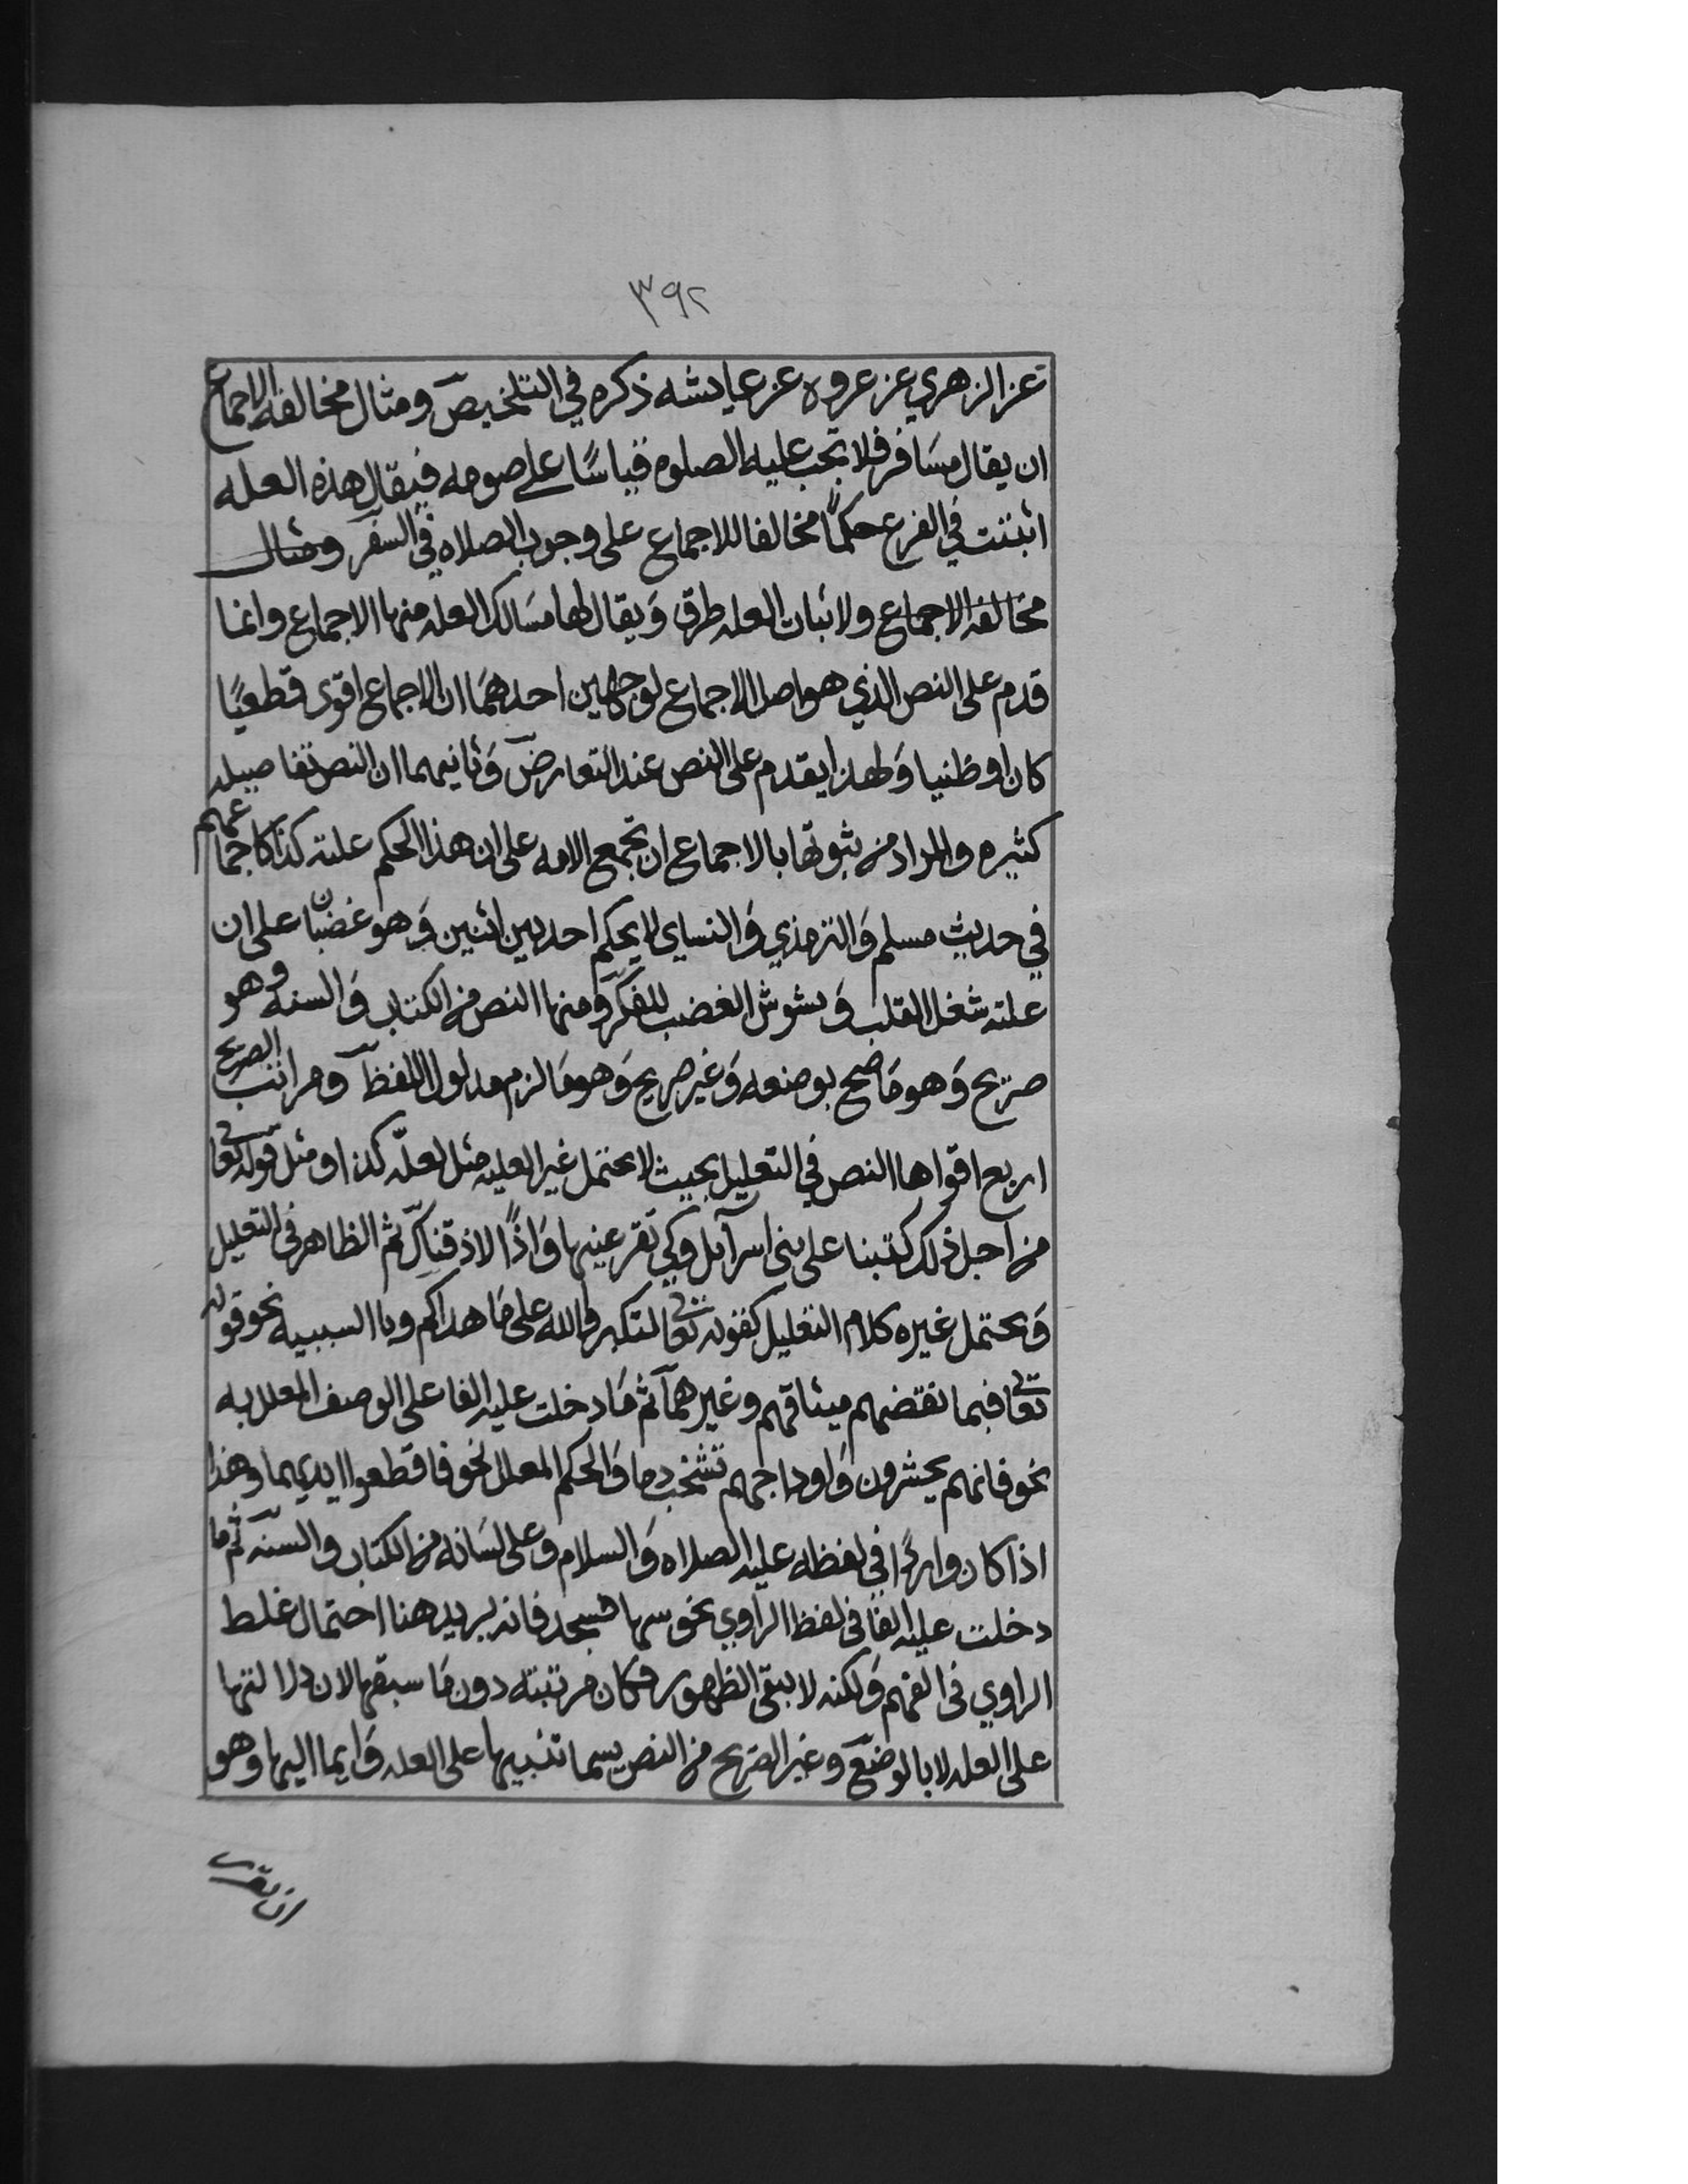 ٣٩٢
عن الزهري عن عروه عن عايشه ذكره في التلخيص ومثال مخالفه الاجماع
ان يقال مسَافر فلا تجب عليه الصلوه قياسًا على صومه فيقال هذه العله
اثبتت في الفرع حكمًا مخالفا للاجماع على وجوب الصلاه في السفر ومثال
مخالفه الاجماع ولاثبات العله طرق وَيقال لها مسَالك العله منها الاجماع وانما
قدم على النص الذي هو اصل الاجماع لوجهين احدهمَا ان الاجماع اقوى قطعيًا
كان او ظنيا وَلهذا يقدم على النص عند التعارض وَثانيهما ان النص تفاصيله
كثيره والمراد من ثبوتها بالاجماع ان تجمع الامه على ان هذا الحكم علته كذا كاجماعهم
في حديث مسلم وَالترمذي وَالنساي لا يحكم احد بين اثنين وَهو غضبان على ان
علته شغل القلب وَيشوش الغضب للفكر ومنها النص من الكتاب وَالسنه وهو
صريح وَهو مَا صح بوضعه وَغير صريح وَهو مَا لزم مدلول اللفظ ومراتب الصريح
اربع اقواها النص في التعليل بحيث لا يحتمل غير العليه مثل لعلّه كذا او مثل قوله تعا
من اجل ذلك كتبنا على بنى اسرآيل وكي تقر عينها وَاذًا لاذقناك ثم الظاهر في التعليل
وَيحتمل غيره كلام التعليل كقوله تعالى لتكبروا الله على مَا هداكم وبا السببيه نحو قوله
تعالى فبما نقضهم ميثاقهم وغيرهمآ ثم مَا دخلت عليه الفا على الوصف المعلل به
نحو فانهم يحشرون وَاوداجهم تشخب دما وَالحكم المعلل نحو فاقطعوا ايديهما وهذا
اذا كان واردًا في لفظه عليه الصلاه وَالسلام وعلى لسَانه من الكتاب والسنه ثم ما
دخلت عليه الفا في لفظ الراوي نحو سها فسجد فانه يزيد هنا احتمال غلط
الراوي فى الفهم وَلكنه لا ينفي الظهور فكان مرتبته دون مَا سبقها لان دلالتها
على العله لا بالوضع وغير الصريح من النص يسما تنبيها على العله وَايما اليها وهو
ان يقترن